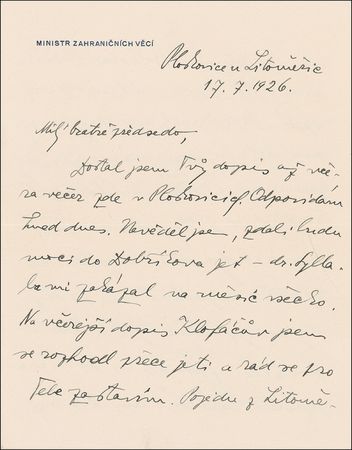 MINISTR ZAHRANIČNÍCH VĚCÍ
Ploskovice u Litoměřic
17. 7. 1926.
Milý bratře předsedo,
Dostal jsem Tvůj dopis až vče-
ra večer zde v Ploskovicích. Odpovídám
hned dnes. Nevěděl jsem, zdali budu
moci do Dobříkova jet – dr. Sylla-
ba mi zakázal na měsíc všecko.
Na včerejší dopis Klofáčův jsem
se rozhodl přece jeti a rád se pro
Tebe zastavím. Pojedu z Litomě-